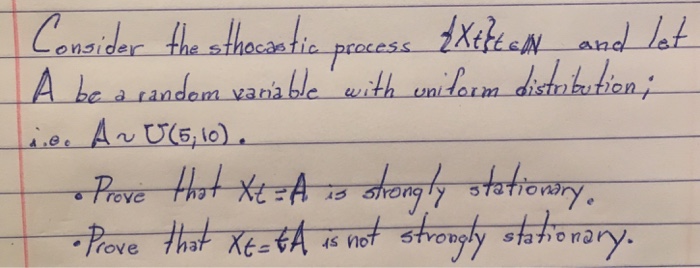 Consider the sthocastic process {Xt}t∈N and let
A be a random variable with uniform distribution;
i.e. A ~ U(5,10).
• Prove that Xt = A is strongly stationary.
• Prove that Xt = tA is not strongly stationary.